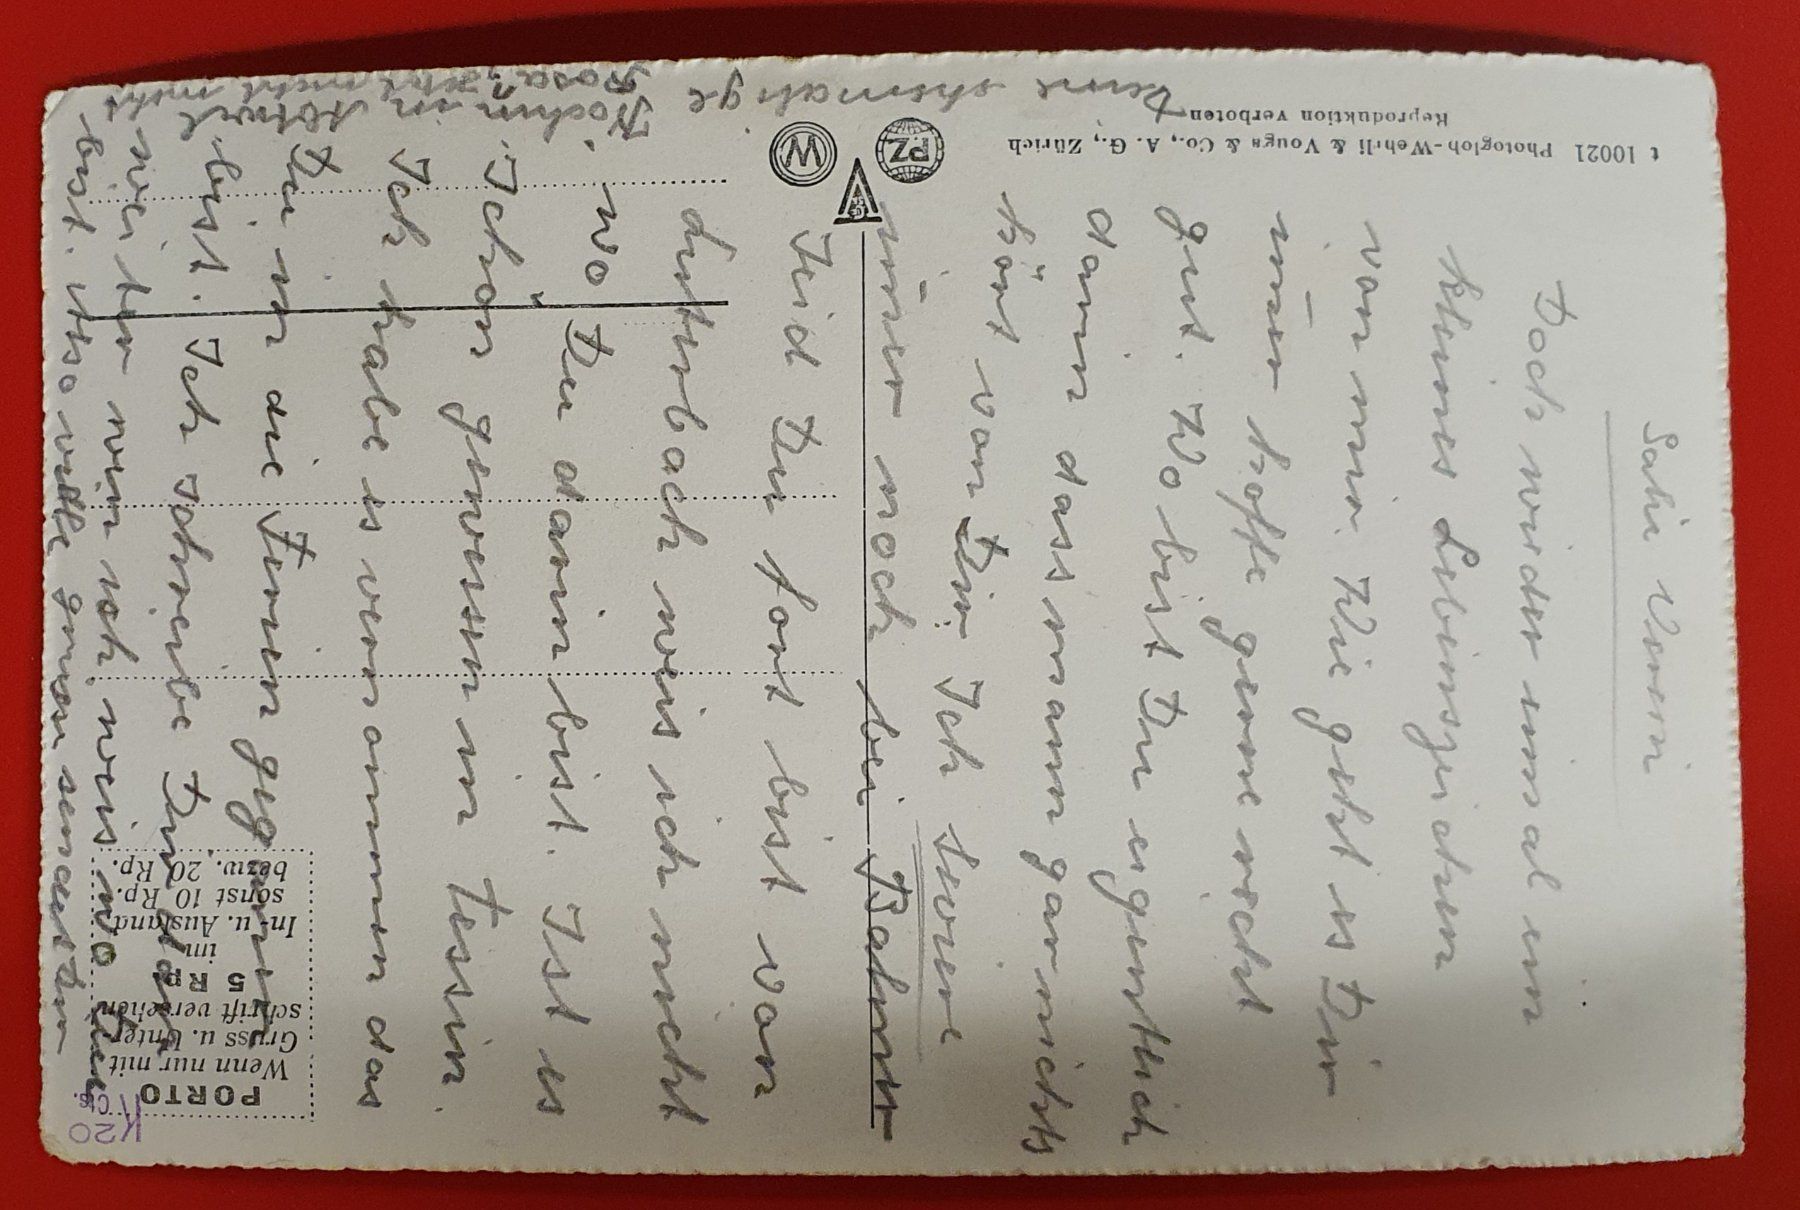 Salü Vreni
Doch wider einmal ein
kleines Lebenszeichen
von mir. Wie geht es Dir
imer hoffe gerne recht
gut. Wo bist Du eigentlich
dann dass man gar nichts
hört von Dir. Ich
imer noch bei Balmer
Seid Du fort bist von
Luterbach weis ich nicht
wo Du dann bist. Ist es
schön gewesen in Tessin.
Ich habe es vernommen das
Du in die Ferien gegangen
bist. Ich schreibe Dir
weiter wen ich weis wo Du
bist. Also viele grüsse sendet Dir
Deine ehemalige
Kochin in Rosa
t 10021 Photogloh-Wehrli & Vouga & Co., A. G., Zürich
Reproduktion verboten
PZ
W
PORTO
Wenn nur mit
Gruss u. Unter-
schrift versehen
5 Rp.
im
In- u. Ausland
sonst 10 Rp.
bezw. 20 Rp.
K20
Cts.